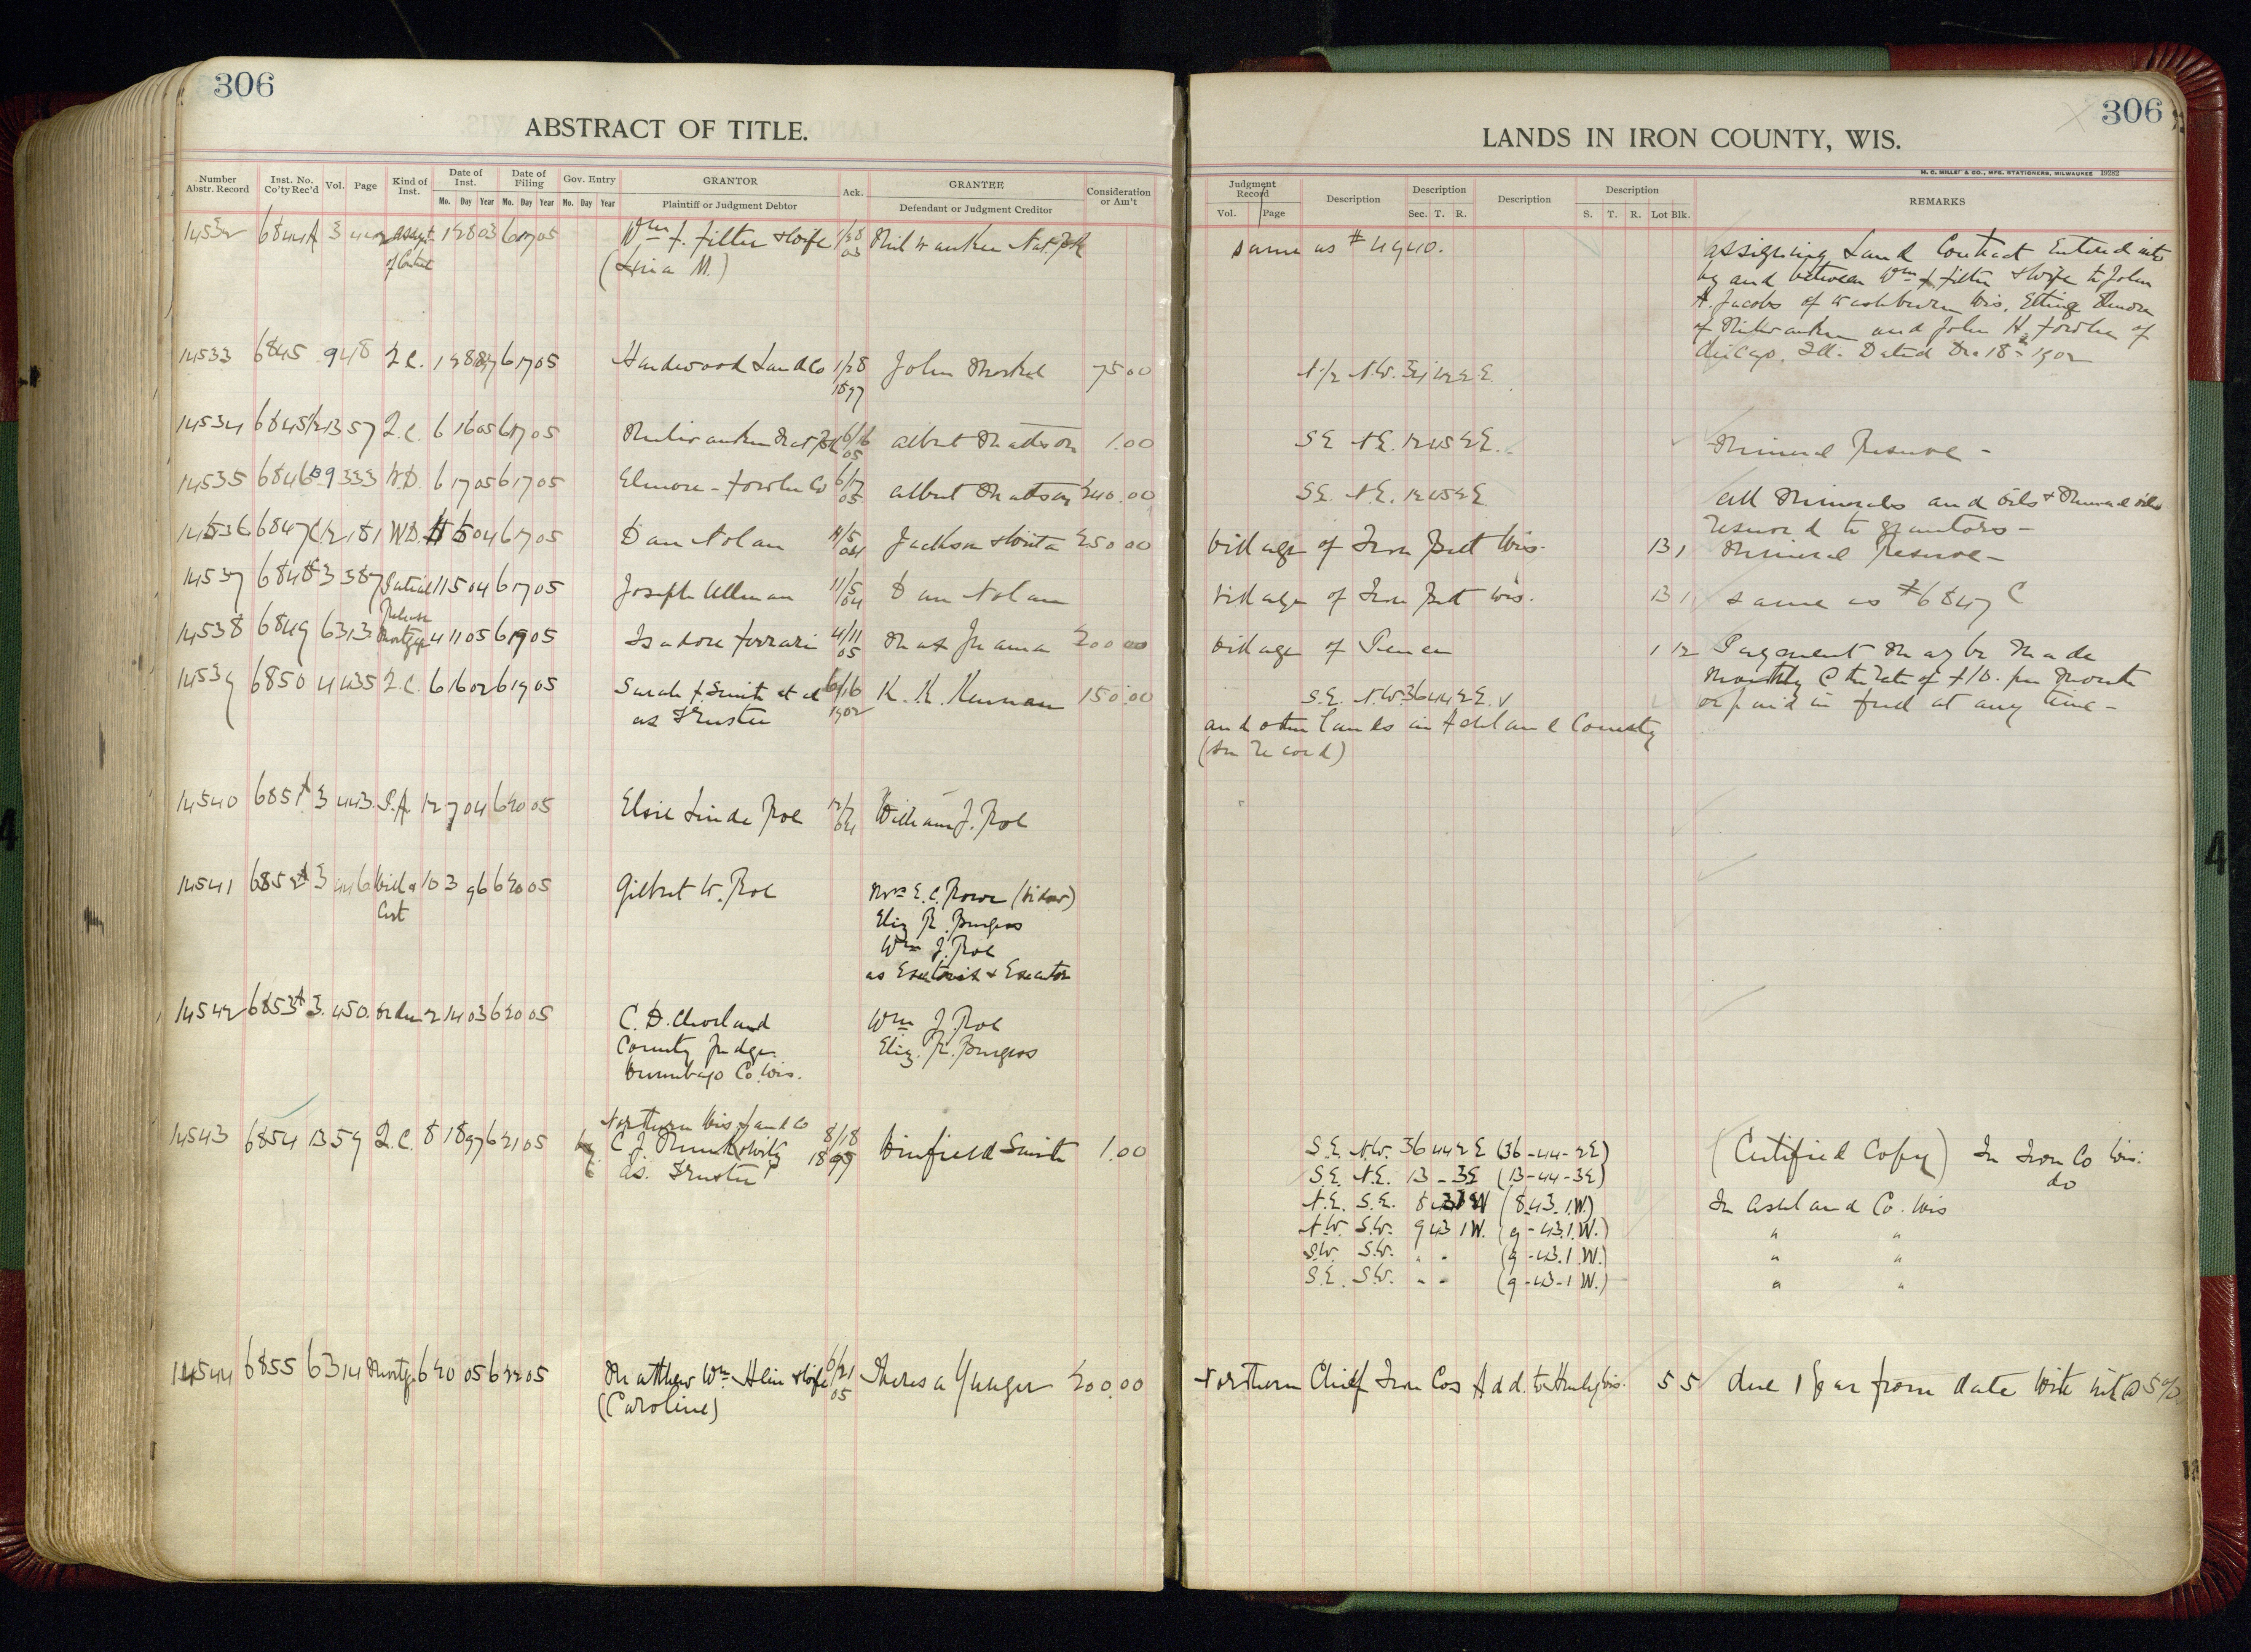 306
306
ABSTRACT OF TITLE.
LANDS IN IRON COUNTY, WIS.
H. C. MILLER & CO., MFG. STATIONERS, MILWAUKEE 19282
Number Abstr. Record
Inst. No. Co'ty Rec'd
Vol.
Page
Kind of Inst.
Date of Inst.
Mo. Day Year
Date of Filing
Mo. Day Year
Gov. Entry
Mo. Day Year
GRANTOR
Plaintiff or Judgment Debtor
Ack.
GRANTEE
Defendant or Judgment Creditor
Consideration or Am't
Judgment Record
Vol. Page
Description
Description
Sec. T. R.
Description
Description
S. T. R. Lot Blk.
REMARKS
14532 6844A 3 Assgt of Cont 1 28 03 6 17 05 Wm F. & Wife 1/28 03 Milwaukee Nat. Bk same as # 4940.
(Lina M.)
assigning Land Contract Entered into
by and between Wm F & Wife to John
A. Jacobs of Washburn Wis.
of Milwaukee and John H. Fowler of
Chicago, Ill. Dated Dec 18th 1902
14533 6845 9 48 Q.C. 1 28 97 6 17 05 Hardwood Land Co 1/28 1897 John 75 00 N 1/2 N.W. 2 E.
14534 6845 1/2 13 57 Q.C. 6 16 05 6 17 05 Milwaukee Nat Bk 6/16 05 Albert Mattson 1.00 S.E. N.E. 12 45 2 E. Mineral Reserve -
14535 6846 B 9 333 W.D. 6 17 05 6 17 05 Elmore - Fowler Co 6/17 05 Albert Mattson 240.00 S.E. N.E. 12 45 2 E All Minerals and Oils & Mineral oils
reserved to grantors -
14536 6847 C 12 181 W.D. 11 5 04 6 17 05 Dan Nolan 11/5 04 Jackson 250 00 Village of Iron Belt Wis. 13 1 Mineral Reserve -
14537 6848 3 387 Partial Release 11 5 04 6 17 05 Joseph Ullman 11/5 04 Dan Nolan Village of Iron Belt Wis. 13 1 same as #6847 C
14538 6849 6 313 Mortgage 4 11 05 6 19 05 Isadore Ferrari 4/11 05 200 00 Village of Pence 1 12 Payment May be Made
Monthly @ the rate of $10. per Month
or paid in full at any time -
14539 6850 4 435 Q.C. 6 16 02 6 19 05 Sarah F. Smith et al 6/16 1902 K. K. Kennan 150.00 S.E. N.W. 36 44 2 E.
as Trustee
and other lands in Ashland County
(See record)
14540 6851A 3 443 P.A. 12 7 04 6 20 05 Elsie Linde Roe 12/7 04 William J. Roe
14541 6852A 3 446 Will & Cert 10 3 96 6 20 05 Gilbert W. Roe Mrs E. C. Rowe (Widow)
Eliz R. Burgess
Wm J. Roe
as Executrix & Executor
14542 6853A 3 450 Order 2 14 03 6 20 05 C. D. Cleveland Wm J. Roe
County Judge Eliz. R. Burgess
Winnebago Co. Wis.
14543 6854 13 59 Q.C. 8 18 97 6 21 05 Northern Wis Land Co 8/18 1897 Winfield Smith 1.00 S.E. N.W. 36 44 2 E (36-44-2E) (Certified Copy) In Iron Co Wis.
by C. J.
as Trustee
S.E. N.E. 13 - 3E (13-44-3E) do
N.E. S.E. 8 43 1 W (8.43.1.W.) In Ashland Co. Wis
N.W. S.W. 9 43 1 W. (9-43.1.W.) " "
S.W. S.W. " " (9-43.1.W.) " "
S.E. S.W. " " (9-43-1 W.) " "
14544 6855 6 314 Mortg. 6 20 05 6 22 05 Matthew Wm Hein & Wife 6/21 05 Theresa Yunger 200.00 Northern Chief Iron Cos Add. to Hurley Wis. 5 5 due 1 year from date with int @ 5%
(Caroline)